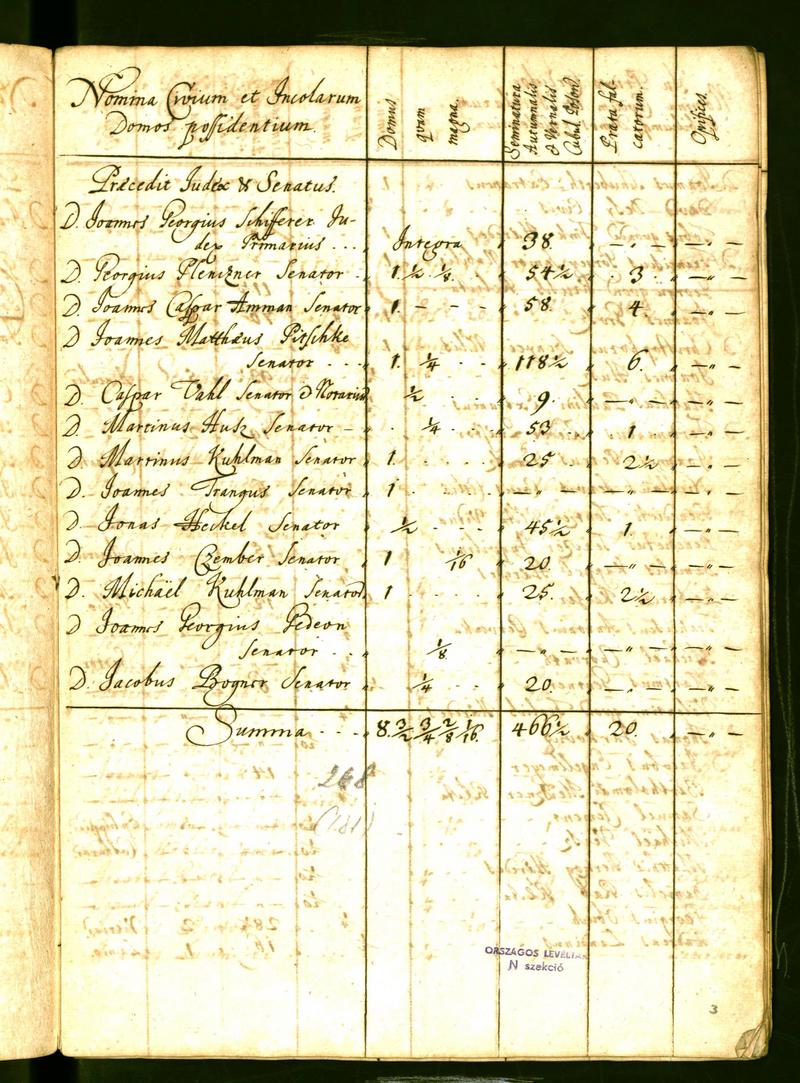 Nomina Civium et Incolarum
Domos possidentium.
Domus quam magna.
Seminatura Autumnalis & Vernalis Cubul. Poson.
Prata falcatorum.
Opifices.
Præcedit Judex & Senatus.
D. Joannes Georgius Schifferer Ju-
dex Primarius . . . " Integra " 38. — " — " — " —
D. Georgius Plenizner Senator . " 1. 1/2 . 1/8 . " 54 1/2 " 3. " — " —
D. Joannes Caspar Amman Senator " 1. - - - " 58 " 4. " — " —
D. Joannes Matthæus Pitschke
Senator . . . " 1. 1/4 . . " 118 1/2 " 6. " — " —
D. Caspar Vahl Senator & Notarius 1/2 . . " 9. " — " — " — " —
D. Martinus Husz Senator — " . 1/4 . . " 53 " 1. " — " —
D. Martinus Kuhlman Senator " 1. . . . " 25 " 2 1/2 " — " —
D. Joannes Tranqus Senator " 1 . . . " — " — " — " — " — " —
D. Jonas Heckel Senator " 1/2 . . . " 45 1/2 " 1. " — " —
D. Joannes Czember Senator " 1 1/16 " 20. " — " — " — " —
D. Michaël Kuhlman Senator " 1 . . . " 25. " 2 1/2 " — " —
D. Joannes Georgius Gedeon
Senator . . " 1/8 " — " — " — " — " — " —
D. Jacobus Bogner Senator " 1/4 . . " 20. " — " — " — " —
Summa . . . " 8. 3/2 3/4 2/8 1/16. 466 1/2 " 20. " — " —
268
(181)
ORSZÁGOS LEVÉLTÁR
N szekció
3